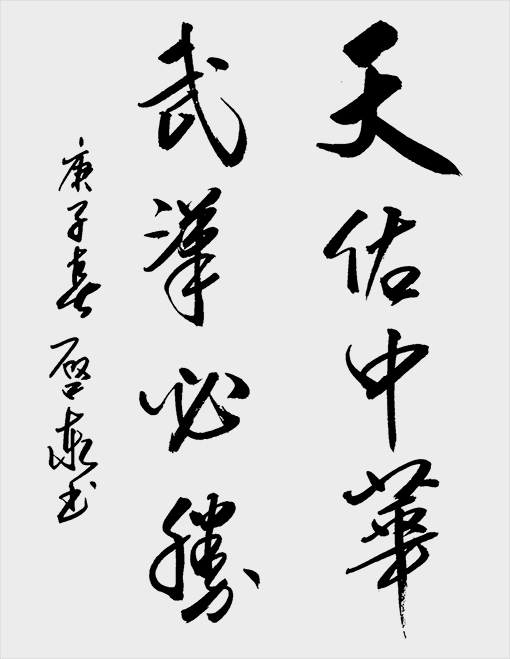 天佑中華
武漢必勝
庚子春啓東书